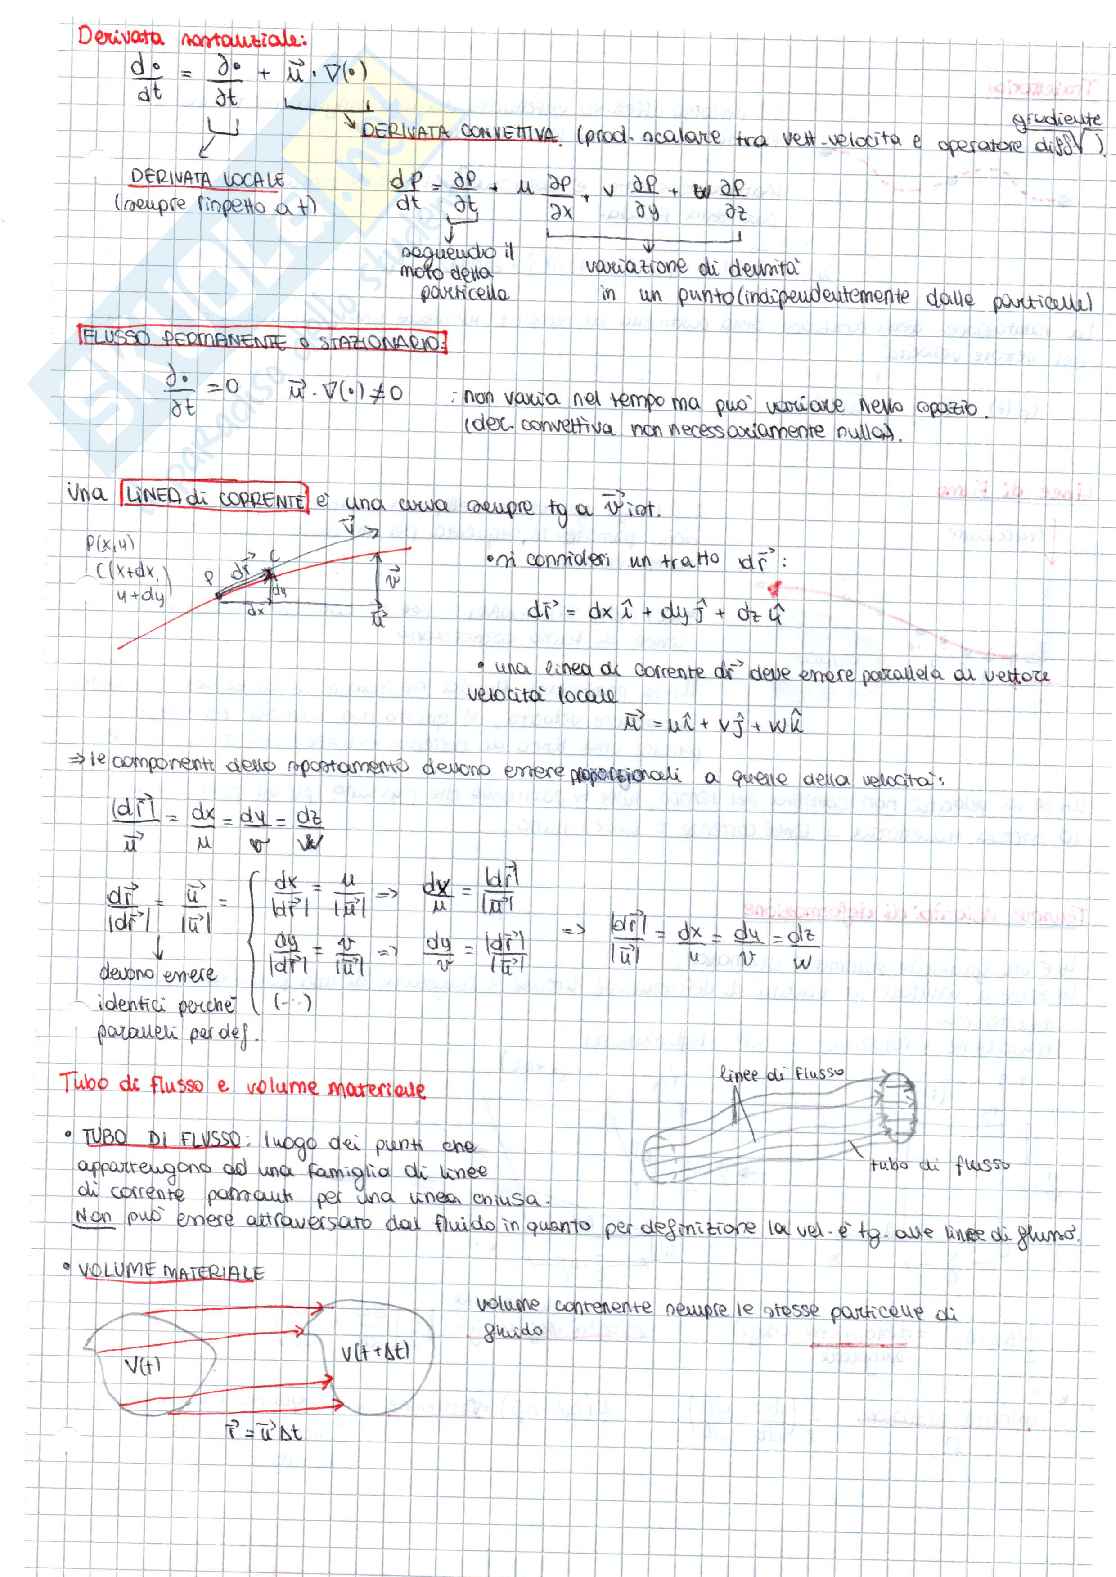 Derivata sostanziale:
d•/dt = ∂•/∂t + u⃗ · ∇(•)
gradiente
DERIVATA CONVETTIVA (prod. scalare tra vett. velocità e operatore diff ∇).
DERIVATA LOCALE
(sempre rispetto a t)
dρ/dt = ∂ρ/∂t + u ∂ρ/∂x + v ∂ρ/∂y + w ∂ρ/∂z
seguendo il
moto della
particella
variazione di densità
in un punto (indipendentemente dalle particelle)
FLUSSO PERMANENTE O STAZIONARIO:
∂•/∂t = 0 u⃗ · ∇(•) ≠ 0 : non varia nel tempo ma può variare nello spazio.
(der. convettiva non necessariamente nulla).
Una LINEA di CORRENTE è una curva sempre tg a v⃗ ist.
P(x,y)
C(x+dx,
y+dy)
P dr⃗ C V⃗
dx dy u⃗ v⃗
• si consideri un tratto dr⃗ :
dr⃗ = dx î + dy ĵ + dz k̂
• una linea di corrente dr⃗ deve essere parallela al vettore
velocità locale
u⃗ = u î + v ĵ + w k̂
⇒ le componenti dello spostamento devono essere proporzionali a quelle della velocità:
|dr⃗|/u⃗ = dx/u = dy/v = dz/w
dr⃗/|dr⃗| = u⃗/|u⃗| = { dx/|dr⃗| = u/|u⃗| => dx/u = |dr⃗|/|u⃗|
dy/|dr⃗| = v/|u⃗| => dy/v = |dr⃗|/|u⃗|
(...)
=> |dr⃗|/|u⃗| = dx/u = dy/v = dz/w
devono essere
identici perché
paralleli per def.
Tubo di flusso e volume materiale
linee di flusso
tubo di flusso
• TUBO DI FLUSSO: luogo dei punti che
appartengono ad una famiglia di linee
di corrente passanti per una linea chiusa.
Non può essere attraversato dal fluido in quanto per definizione la vel. è tg. alle linee di flusso.
• VOLUME MATERIALE
volume contenente sempre le stesse particelle di
fluido
V(t) V(t+Δt)
r⃗ = u⃗ Δt